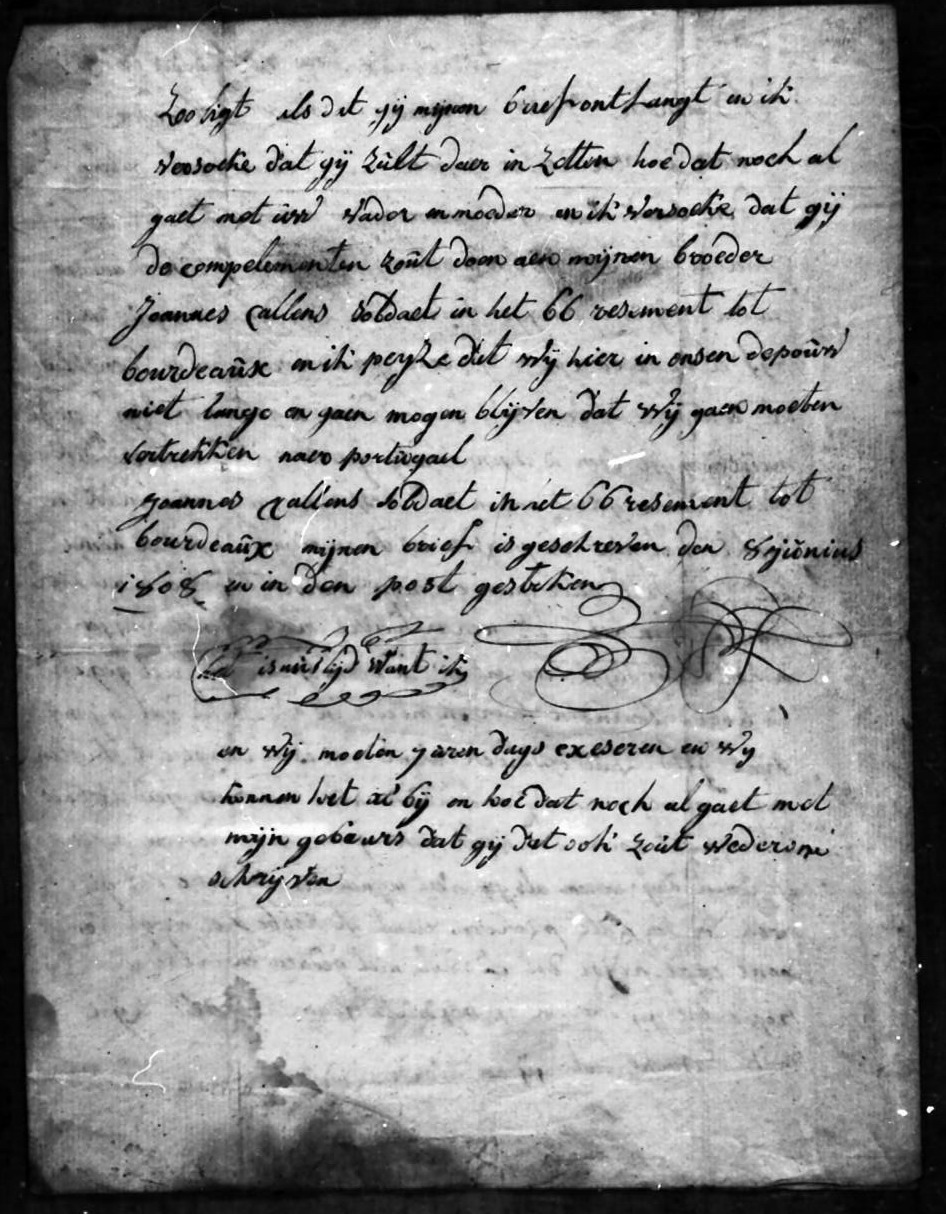 Zoo ligt als dat gij mijnen brief ontfangt en ik
versoeke dat gij zult daer in zetten hoe dat noch al
gaet met uw vader en moeder en ik versoeke dat gij
de compelementen zout doen aen mijnen broeder
Joannes Callens soldaet in het 66 resement tot
bourdeaux en ik peyze dat wij hier in onsen depouw
niet lange en gaen mogen blijven dat wij gaen moeten
vertrekken naer portugael
Joannes Callens soldaet in het 66 resement tot
bourdeaux mijnen brief is geschreven den 8 juinius
1808 en in den post gesteken
is niet tijd want ik
en wij moeten daegs exeseren en wy
konnen het al bij en hoe dat noch al gaet met
mijn gebeurs dat gij dat ook zout wederom
schrijven